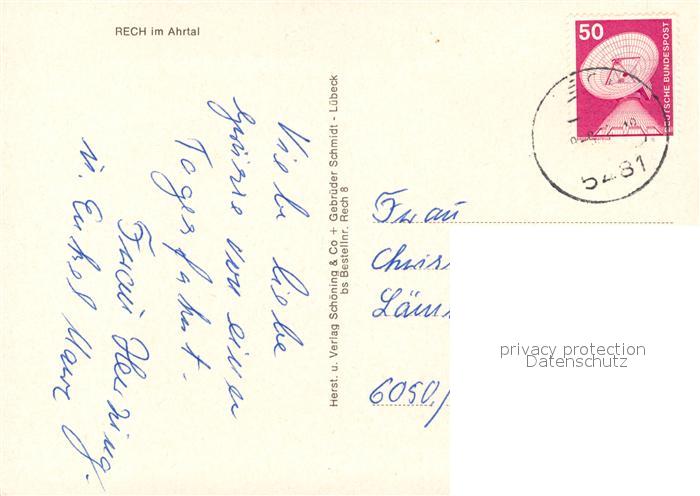 RECH im Ahrtal
50
DEUTSCHE BUNDESPOST
5481
Viele liebe
Grüsse von einer
Tagesfahrt.
Frau Henning.
u. Enkel
Herst. u. Verlag Schöning & Co + Gebrüder Schmidt - Lübeck
bs Bestellnr. Rech 8
Frau
6050,
privacy protection
Datenschutz